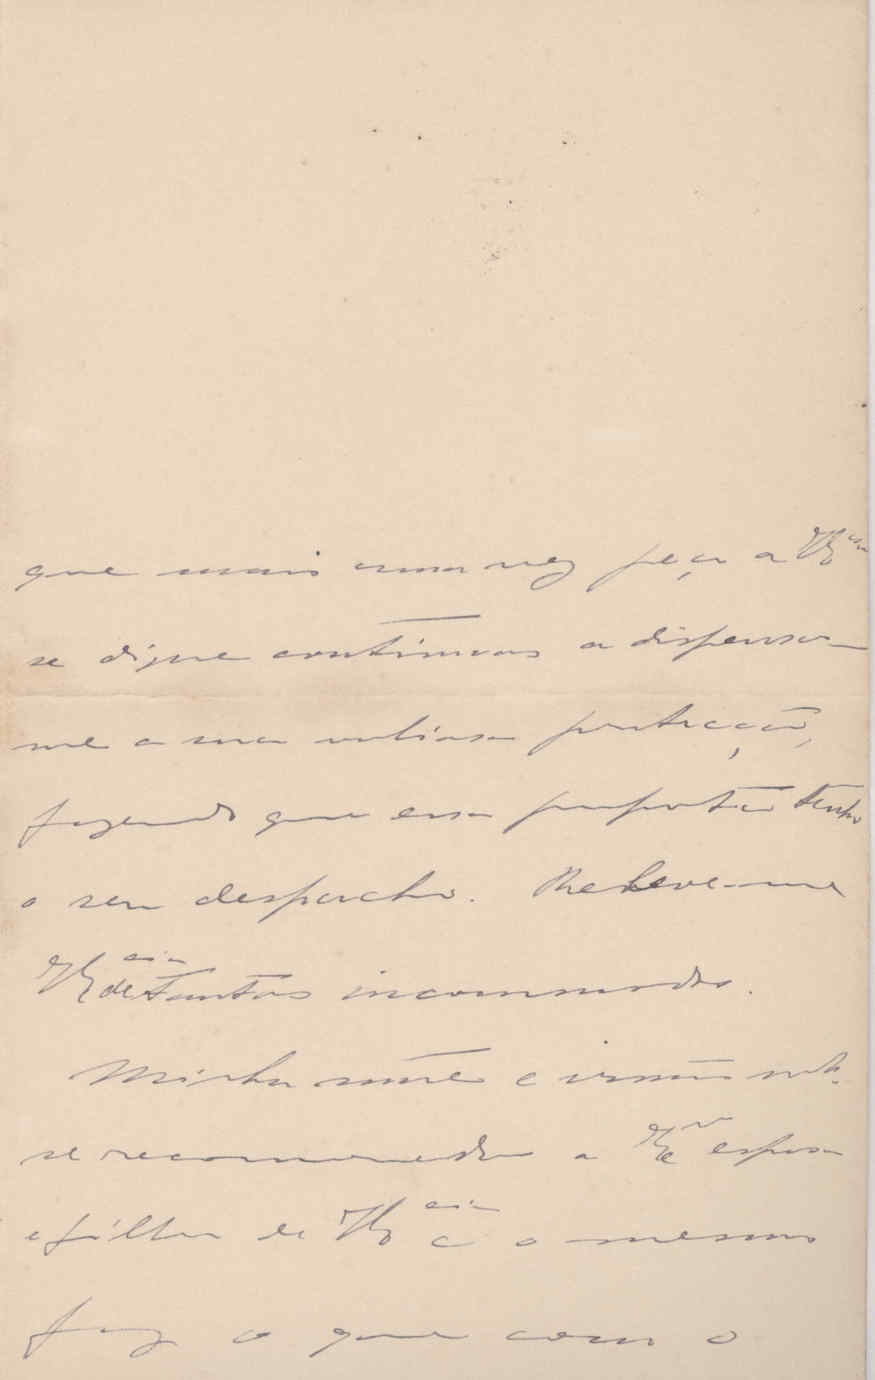 que mais uma vez peço a V Ex.cia
se digne continuar a dispensar-
me a sua valiosa protecção,
fazendo que essa pretenção tenha
o seu despacho. Releve-me
V Ex.cia de tantos incommodos.
Minha mãe e irmãs
se recomendão a Ex.ma esposa
e filha de V Ex.cia e o mesmo
faz o que com o